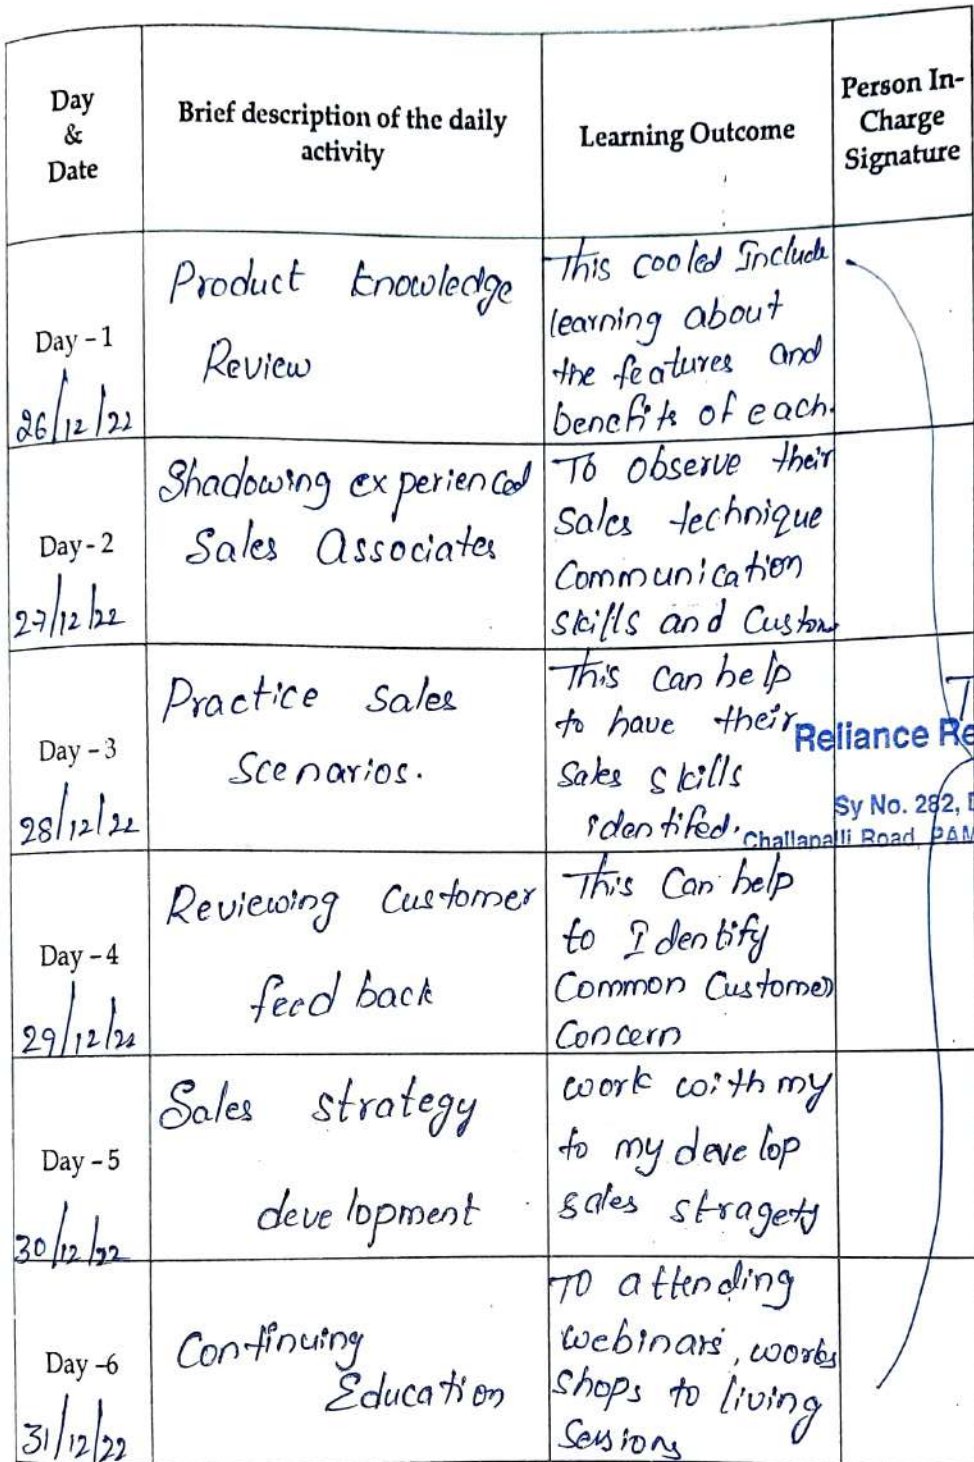 Day
&
Date
Brief description of the daily
activity
Learning Outcome
Person In-
Charge
Signature
Day - 1
26/12/22
Product knowledge
Review
This cooled Include
learning about
the features and
benefits of each.
Day - 2
27/12/22
Shadowing experienced
Sales Associates
To observe their
Sales technique
Communication
skills and Custom
Day - 3
28/12/22
Practice sales
Scenarios.
This can help
to have their
Sales skills
identifed.
Reliance Re
Sy No. 282,
Challapalli Road, PAM
Day - 4
29/12/22
Reviewing Customer
feed back
This Can help
to Identify
Common Customer
Concern
Day - 5
30/12/22
Sales strategy
development
work with my
to my develop
sales stragety
Day -6
31/12/22
Continuing
Education
To attending
webinars, works
shops to living
Sessions